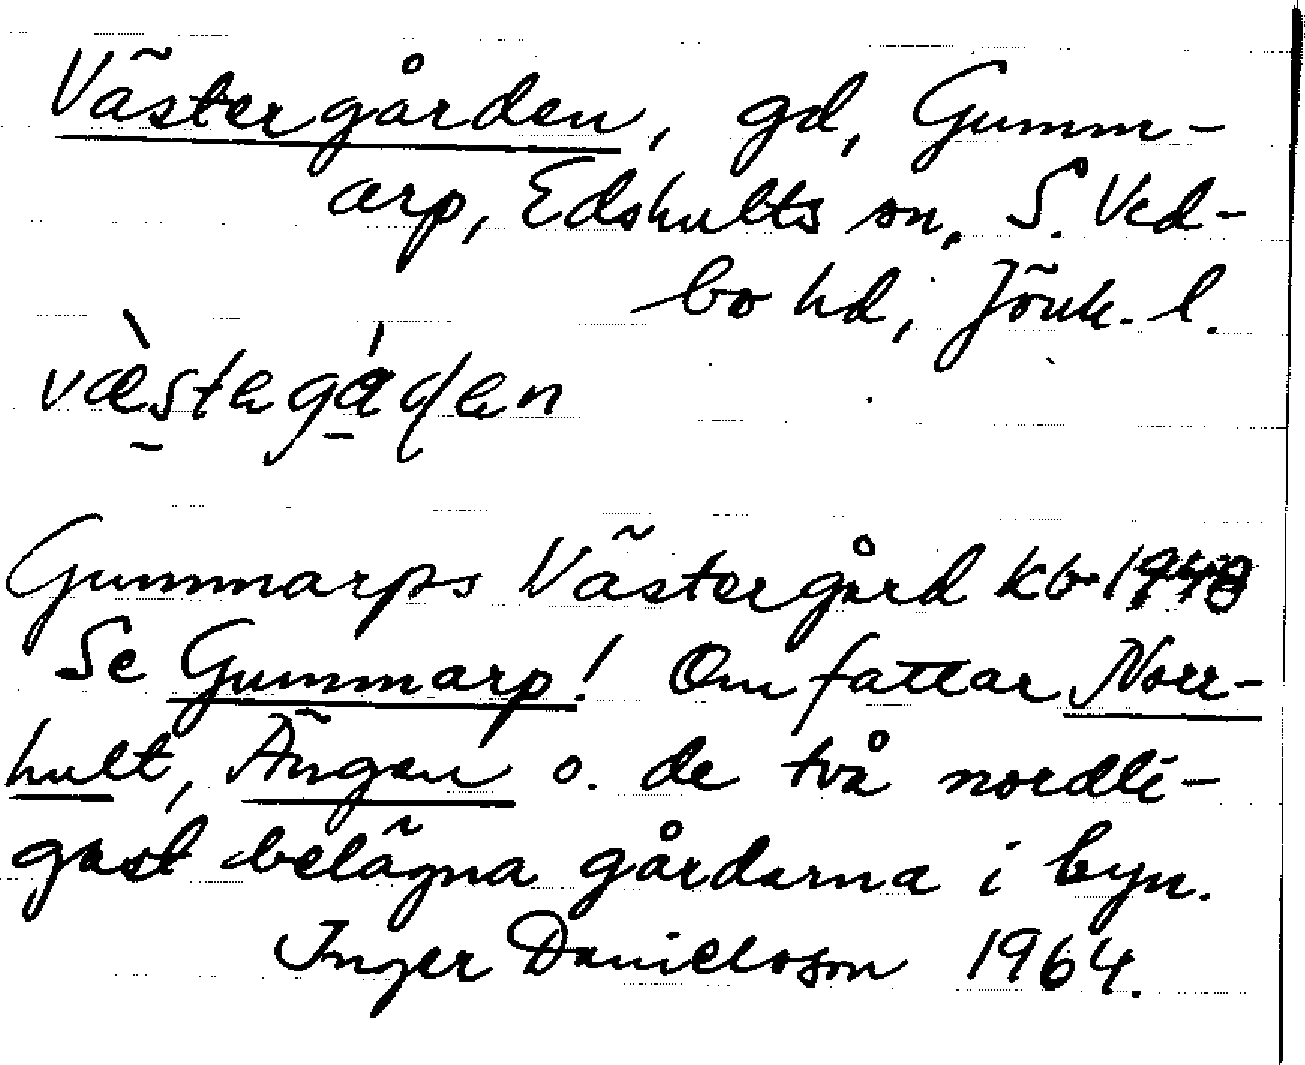 Västergården, gd, Gumm-
arp, Edshults sn, S. Ved-
bo hd, Jönk. l.
væ̀stegáɖen
Gummarps Västergård kb. 1948
Se Gummarp! Omfattar Norr-
hult, Ängen o. de två nordli-
gast belägna gårdarna i byn.
Inger Danielsson 1964.